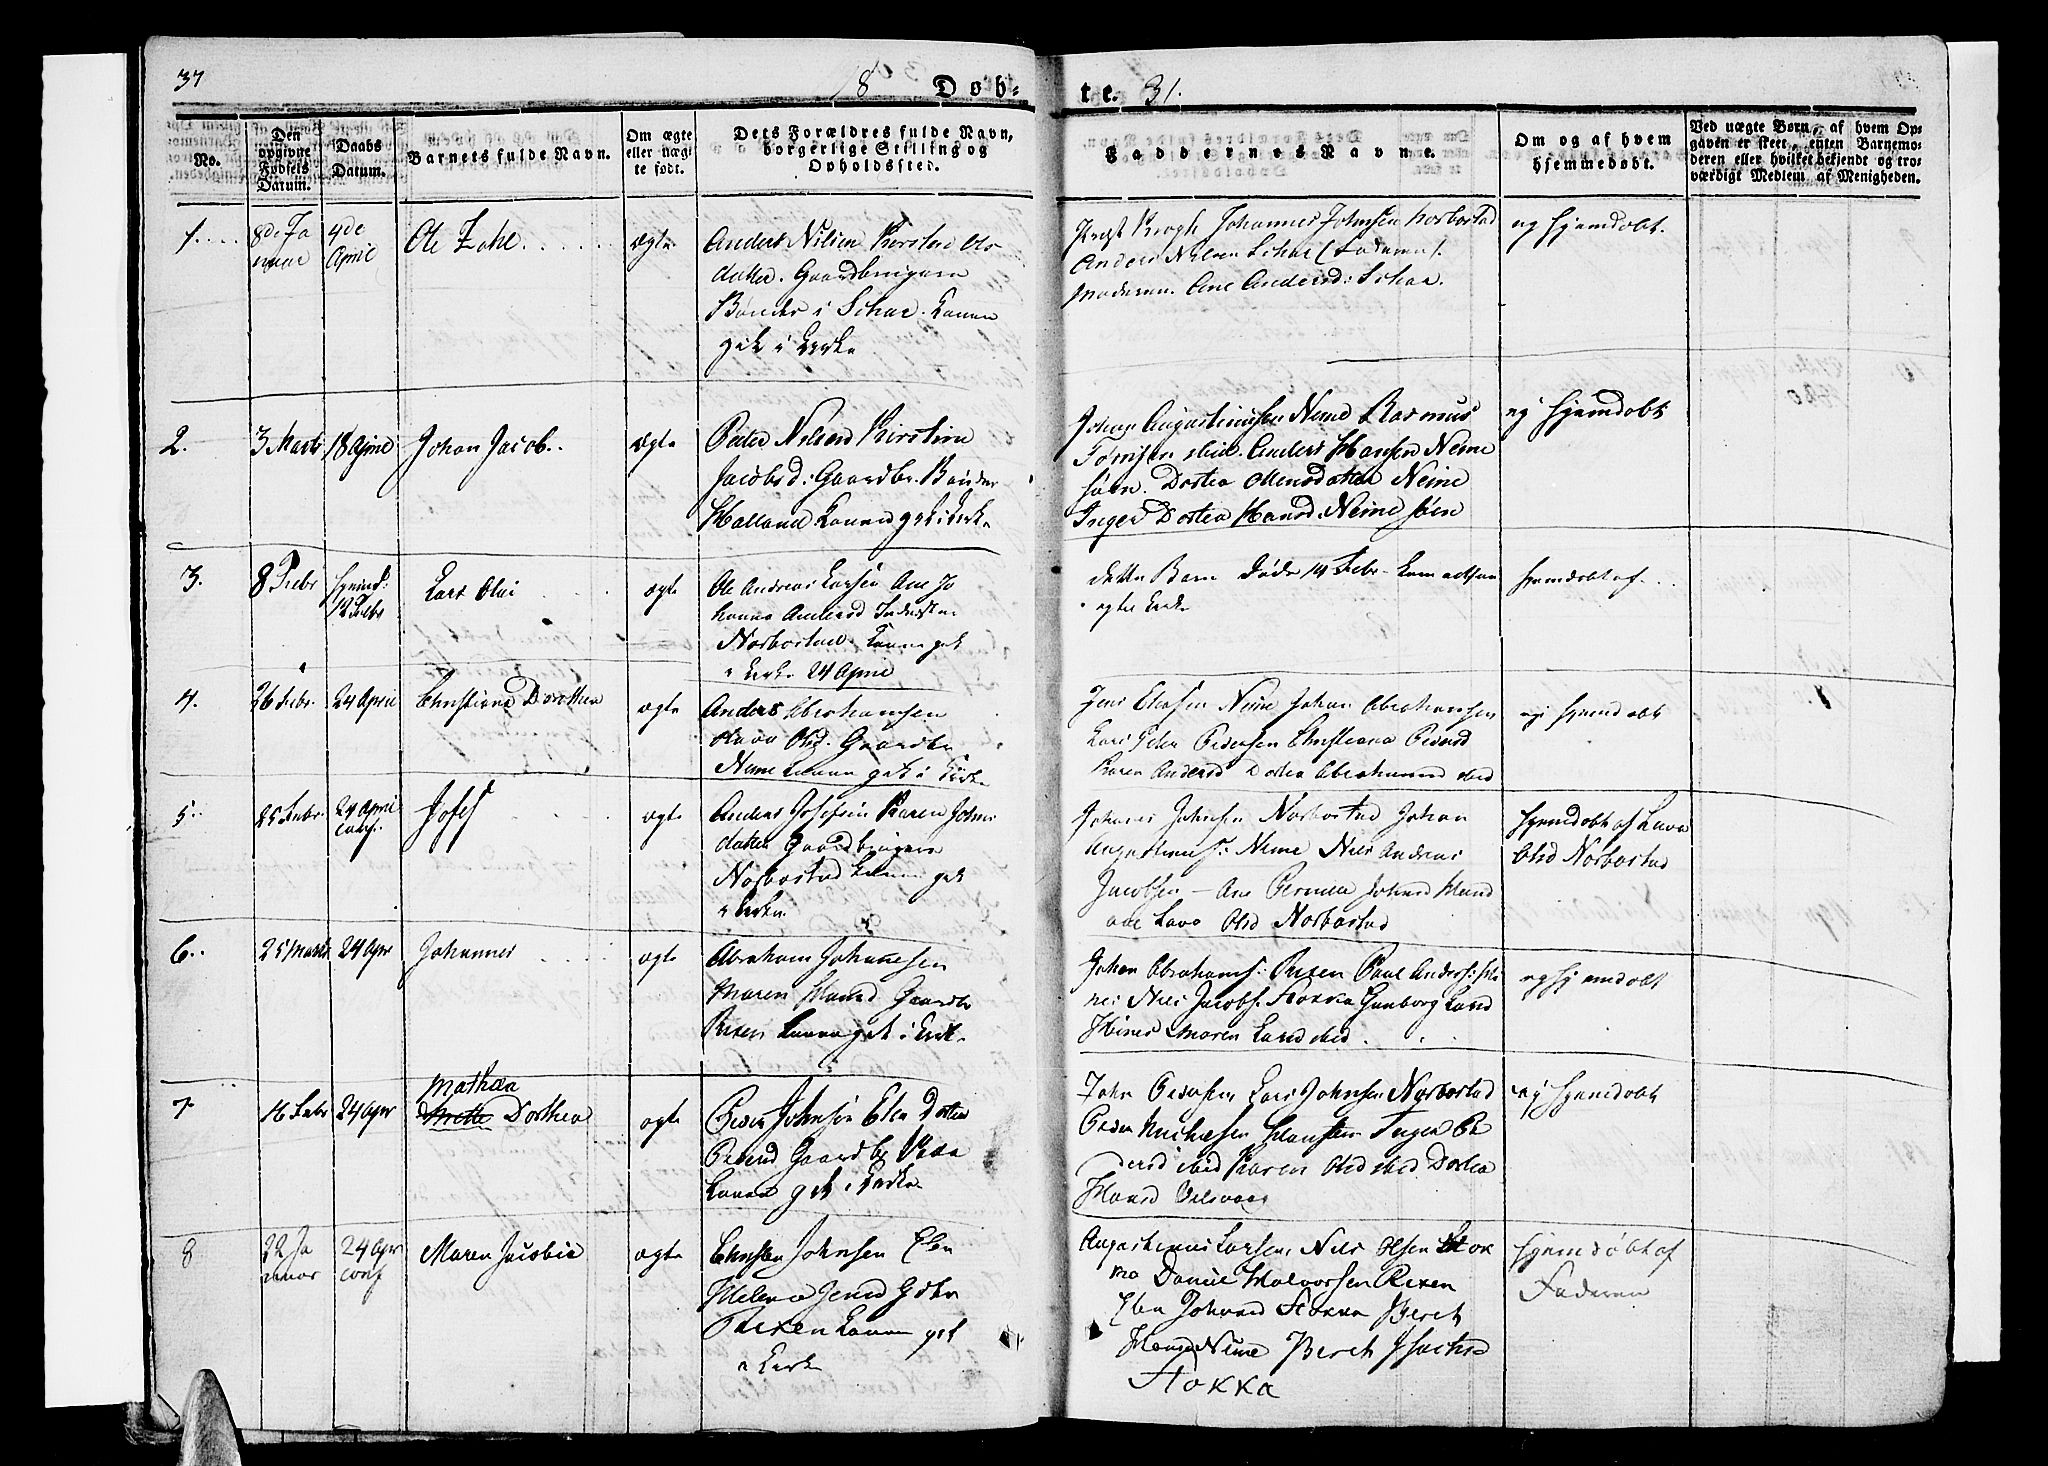 37
18
Døb-
te.
31.
No.
Den opgivne Fødsels Datum.
Daabs Datum.
Barnets fulde Navn.
Om ægte eller uægte født.
Dets Forældres fulde Navn, borgerlige Stilling og Opholdssted.
Faddernes Navne.
Om og af hvem hjemmedøbt.
Ved uægte Børn, af hvem Opgaven er skeet, enten Barnemoderen eller hvilket bekjendt og troværdigt Medlem af Menigheden.
1.
8de Ja
nuar
4de
April
Ole Zahl
ægte
Anders Nilsen Kirsten Ols
datter. Gaardbrugere
Bønder i Schar. Konen
gik i Kirke
Johannes Johnsen Norbostad
Anders Nilsen Schar (Faderen).
Moderen. Ane Andersd: Schar.
ey hjemdøbt.
2.
3 Marts
18 April
Johan Jacob.
ægte
Peder Nilsen Kirstine
Jacobsd: Gaardbr. Bønder
Halland Konen gik i Kirke
Johan Augustinussen Neine Rasmus
Tønnsen ibid. Anders Hansen Neine
søen. Dortea Monsdatter Neine
Inger Dortea Hansd: Neine søen
ej hjemdøbt
3.
8 Febr
hjemd:
12 Febr
Lars Olai
ægte
Ole Andreas Larsen Ane Jo
hanna Andersd
Norbostad. Konen gik
i Kirke 24 April
dette Barn døde 14 Febr
hjemdøbt af
4.
26 Febr.
24 April
Christiana Dorthea
ægte
Anders Abrahamsen
Olsd. Gaardbr
Neine Konen gik i Kirke
Jens Olsen Neine Johan Abrahamsen
Lars Peter Pedersen Christiana Pedersd
Karen Andersd Dortea Abrahamsd ibid
ej hjemdøbt
5.
25 Febr.
24 April
conf.
Josef
ægte
Anders Josefsen Karen Johns
datter Gaardbrugere
Norbostad Konen gik
i Kirke
Johannes Johnsen Norbostad Johan
Augustinuss: Neine Nils Andreas
Jacobsen - Ane Pernilla Johnsd
Lava Olsd Norbostad
hjemdøbt af Lava
Olsd Norbostad
6.
25 Marts
24 Apr
Johannes
ægte
Abraham Johannesen
Maren Hansd Gaardbr
Rexen Konen gik i Kirke
Johan Abrahams: Rexen Paul Anders:
Nils Jacobs. Stokka Gunborg Larsd
Maren Larsd ibid.
ej hjemdøbt
7
16 Febr
24 Apr
Mathea
Dorthea
ægte
Peder Johnsen Elen Dortea
Pedersd Gaardbr
Konen gik i Kirke
John Pedersen Lars Johnsen Norbostad
Peder Michelsen Inger Pe
dersd ibid Karen Olsd ibid Dortea
Hansd
ej hjemdøbt
8
22 Ja
nuar
24 Apr
conf
Maren Jacobia
ægte
Christen Johnsen Elen
Helena Jensd Gbr
Rexen Konen gik
i Kirke
Augustinus Larsen, Nils Olsen
Daniel Halvorsen Rexen
Elen Johansd Stokka Beret
Hansd Neine Beret Isachsd
Stokka
hjemdøbt af
Faderen